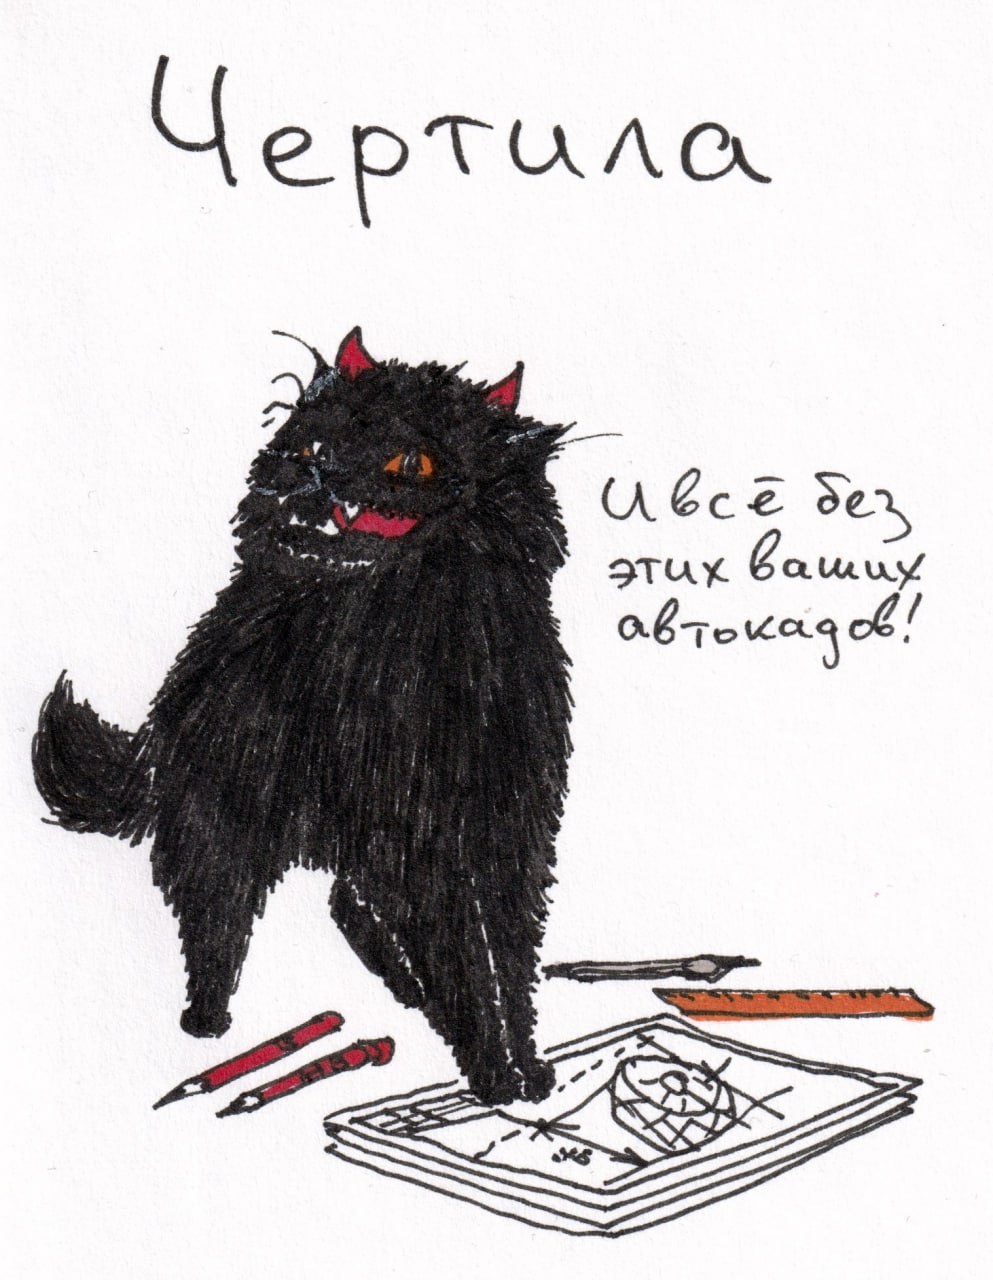 Чертила
И всё без
этих ваших
автокадов!